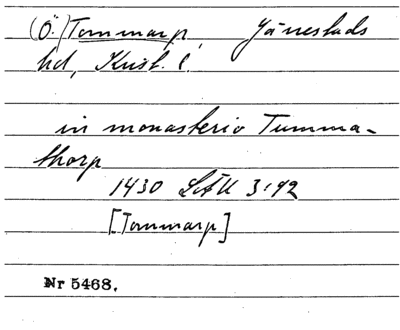 (Ö.) Tommarp, Järrestads
hd, Krist. l.
in monasterio Tumma-
thorp
1430 LÄU 3:92
[Tommarp]
Nr 5468.